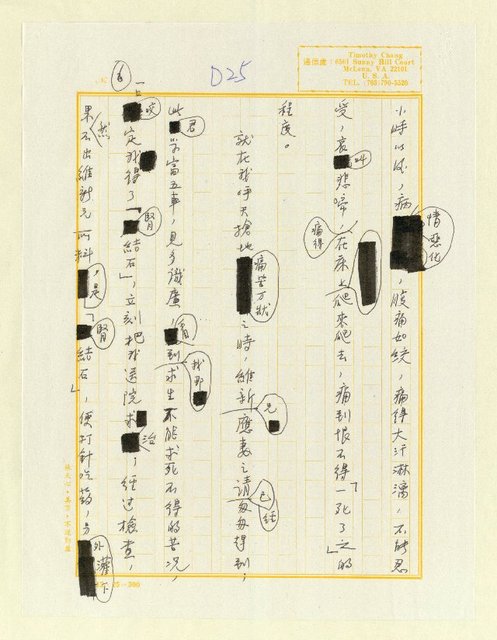 Timothy Chang
通信處：6561 Sunny Hill Court
McLean, VA 22101
U. S. A.
TEL. (703) 790-5526
D25
小時以後，病情惡化，腹痛如絞，痛得大汗淋漓，不能忍
受，哀叫悲啼，痛得在床上爬來爬去，痛到恨不得「一死了之」的
程度。
就在我呼天搶地痛苦万狀之時，維新兄應妻之請已經匆匆趕到；
此君學富五車，見多識廣，看到我那求生不能求死不得的苦况，
一口咬定我得了「腎結石」，立刻把我送院求治，經过檢查，
果然不出維新兄所料，是「腎結石」，便打針吃葯，另外灌下
25-300